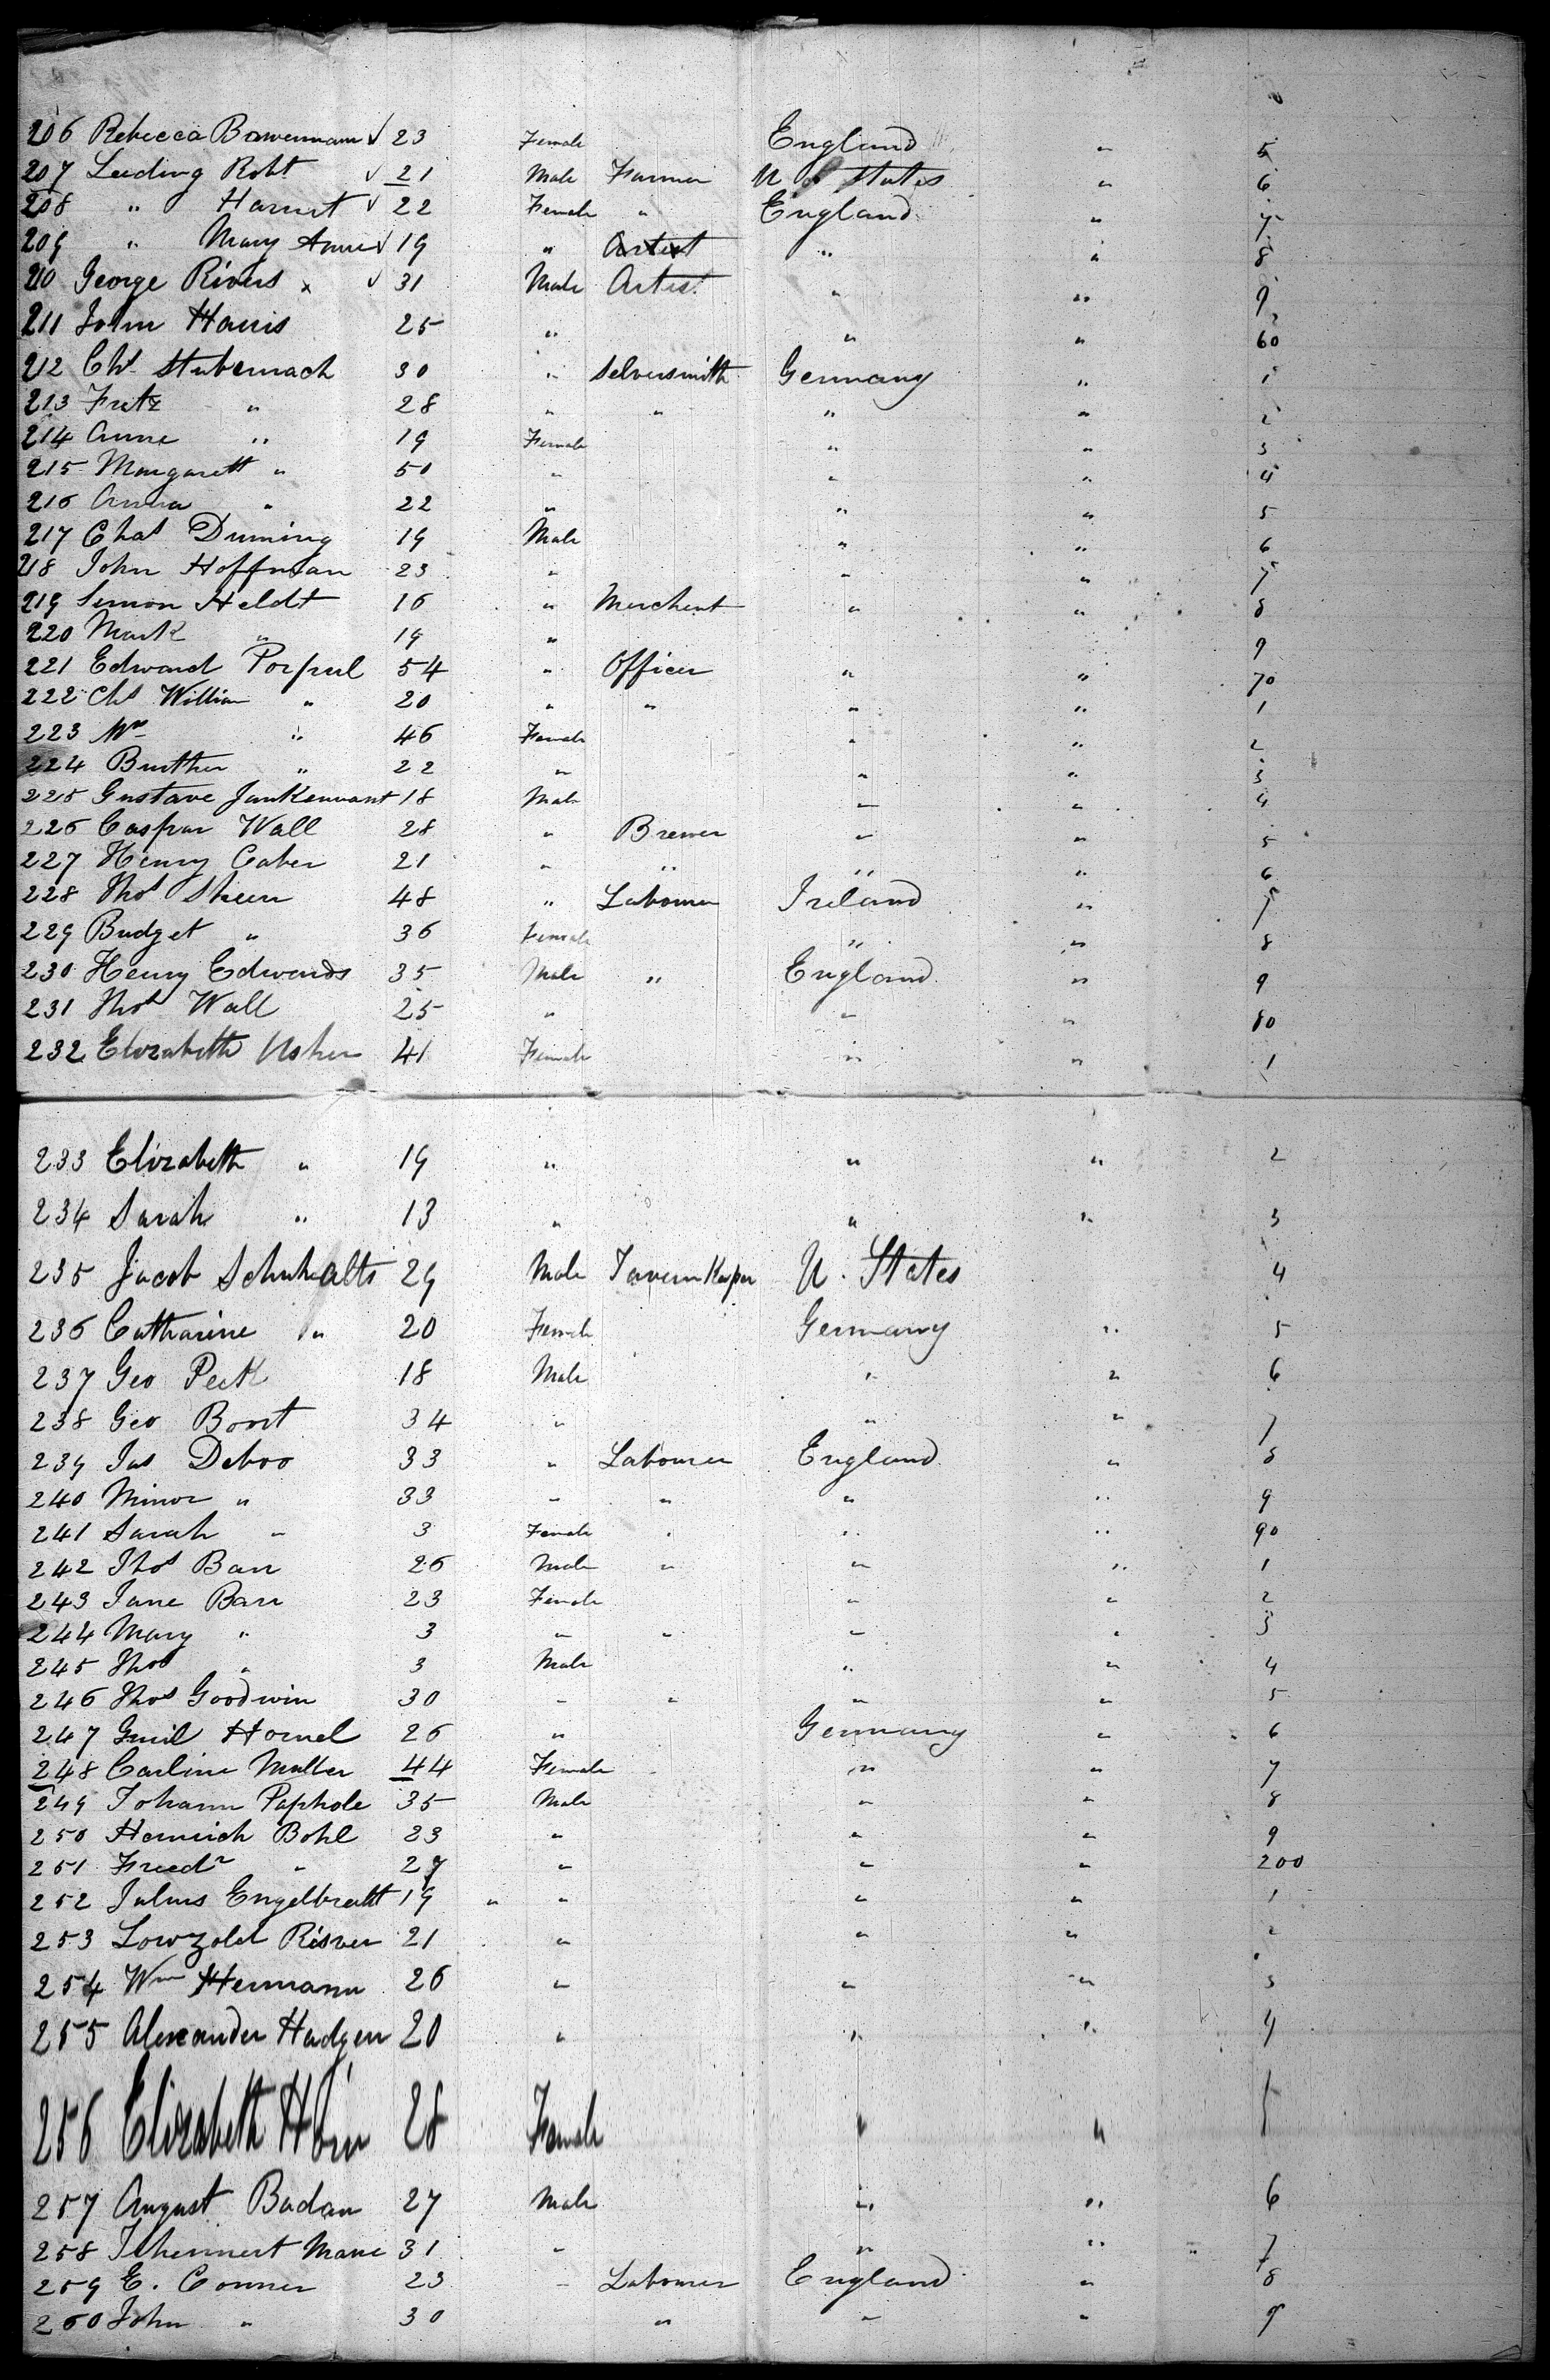 206 Rebecca Bowermann √ 23 Female England " 5
207 Leeding Robt √ 21 Male Farmer U States " 6
208 " Harriet √ 22 Female " England " 7
209 " Mary Anne √ 19 " Artist " " 8
210 George Rivers x √ 31 Male Artist " " 9
211 John Harris 25 " " " 60
212 Chs Stubenrach 30 " Selversmith Germany " 1
213 Fritz " 28 " " " " 2
214 Anne " 19 Female " " 3
215 Margarett " 50 " " " 4
216 Anna " 22 " " " 5
217 Chas Druming 19 Male " " 6
218 John Hoffman 23 " " " 7
219 Simon Heldt 16 " Merchent " " 8
220 Mark " 19 " 9
221 Edward 54 " Officer " " 70
222 Chs William " 20 " " " " 1
223 Mrs " 46 Female " " 2
224 Burther " 22 " " " 3
225 Gustave 18 Male " " 4
226 Caspar Wall 28 " Brewer " " 5
227 Henry Caber 21 " " " " 6
228 Thos Skeen 48 " Labourer Ireland " 7
229 Budget " 36 Female " " 8
230 Henry Edwards 35 Male " England " 9
231 Thos Wall 25 " " " 80
232 Elizabeth Usher 41 Female " " 1
233 Elizabeth " 19 " " " 2
234 Sarah " 13 " " " 3
235 Jacob Schuhalts 29 Male Tavern Keeper U. States 4
236 Catharine " 20 Female Germany " 5
237 Geo Peck 18 Male " " 6
238 Geo Borst 34 " " " 7
239 Jas Deboo 33 " Labourer England " 8
240 Minor " 33 " " " " 9
241 Sarah " 3 Female " " " 90
242 Thos Barr 26 Male " " " 1
243 Jane Barr 23 Female " " 2
244 Mary " 3 " " " " 3
245 Thos " 3 Male " " 4
246 Thos Goodwin 30 " " " " 5
247 Hornel 26 " Germany " 6
248 Carline Muller 44 Female " " 7
249 Johann Paphole 35 Male " " 8
250 Heinrich Bohl 23 " " " 9
251 Friedr " 27 " " " 200
252 Julius Engelbrecht 19 " " " " 1
253 Risver 21 " " " 2
254 Wm Hermann 26 " " " 3
255 Alexander Hadgen 20 " " " 4
256 Elizabeth Horn 28 Female " " 5
257 August Badan 27 Male " " 6
258 Marie 31 " " " 7
259 E. Conner 23 " Labourer England " 8
260 John " 30 " " " 9